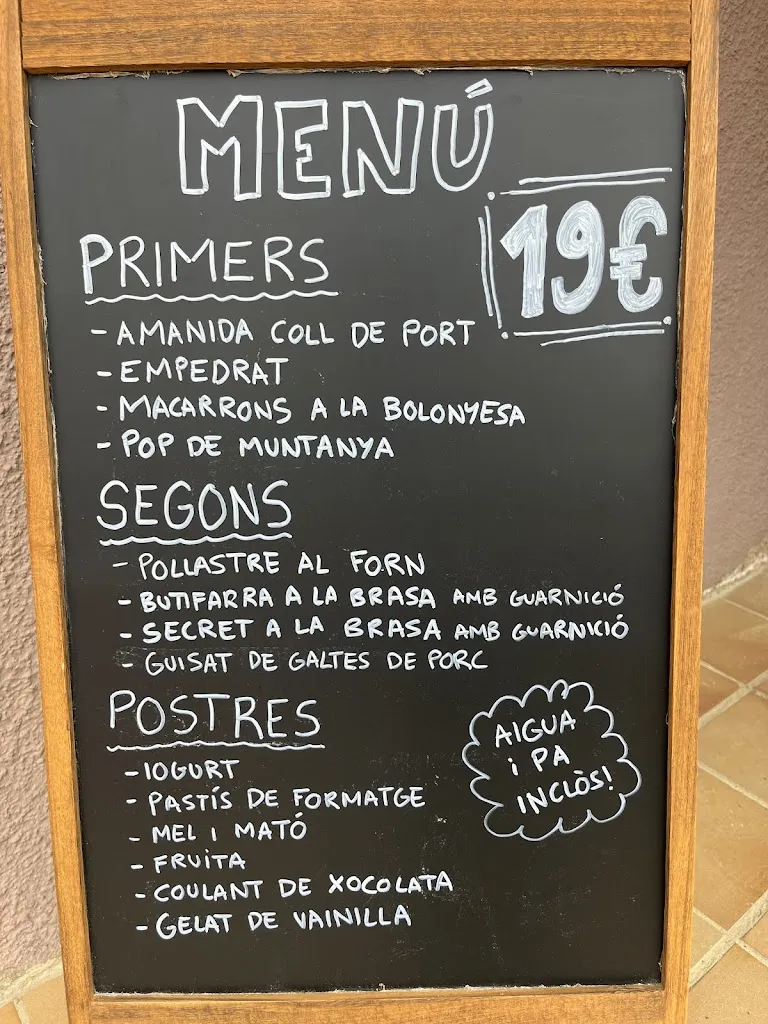 MENÚ
19€
PRIMERS
- AMANIDA COLL DE PORT
- EMPEDRAT
- MACARRONS A LA BOLONYESA
- POP DE MUNTANYA
SEGONS
- POLLASTRE AL FORN
- BUTIFARRA A LA BRASA AMB GUARNICIÓ
- SECRET A LA BRASA AMB GUARNICIÓ
- GUISAT DE GALTES DE PORC
POSTRES
- IOGURT
- PASTÍS DE FORMATGE
- MEL I MATÓ
- FRUITA
- COULANT DE XOCOLATA
- GELAT DE VAINILLA
AIGUA
i PA
INCLÒS!